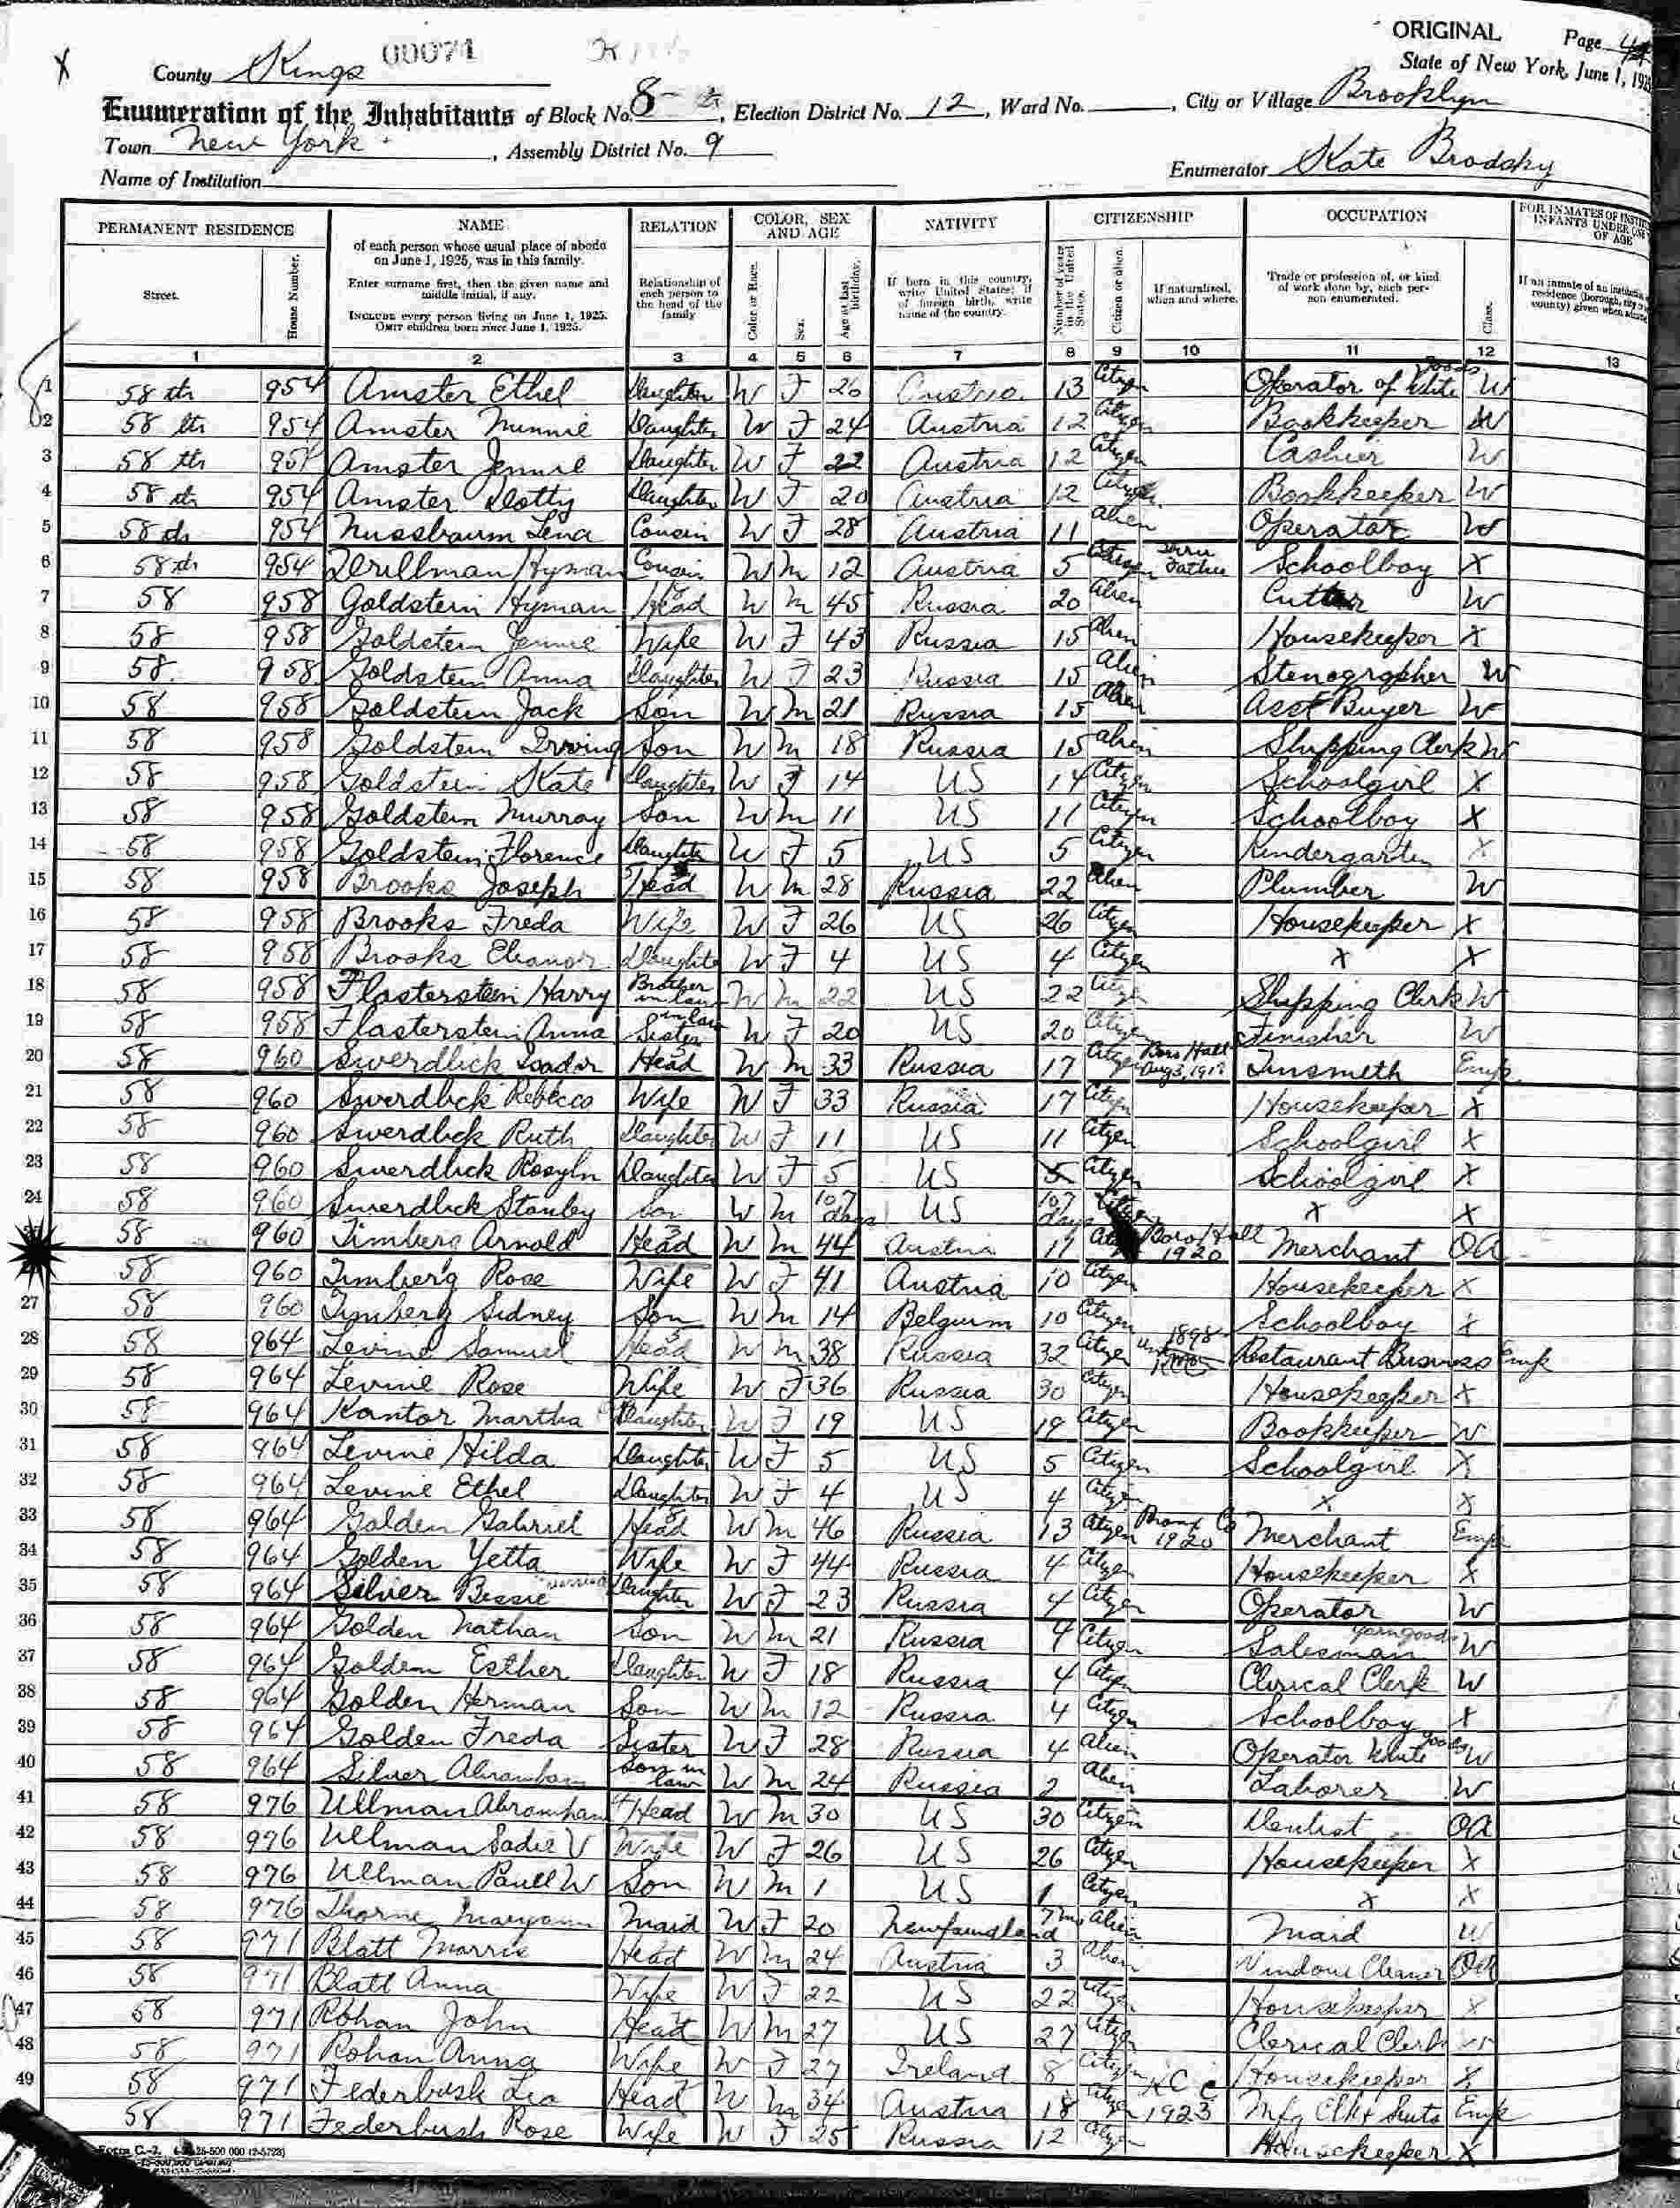 ORIGINAL Page
00071
County Kings State of New York, June 1, 192
Enumeration of the Inhabitants of Block No. 8, Election District No. 12, Ward No., City or Village Brooklyn
Town New York, Assembly District No. 9
Name of Institution Enumerator Kate Brodsky
PERMANENT RESIDENCE NAME RELATION COLOR, SEX AND AGE NATIVITY CITIZENSHIP OCCUPATION FOR INMATES OF INSTIT INFANTS UNDER ONE OF AGE
Street. House Number. of each person whose usual place of abode on June 1, 1925, was in this family. Enter surname first, then the given name and middle initial, if any. INCLUDE every person living on June 1, 1925. OMIT children born since June 1, 1925. Relationship of each person to the head of the family Color or Race. Sex. Age at last birthday. If born in this country, write United States; if of foreign birth, write name of the country. Number of years in the United States. Citizen or alien. If naturalized, when and where. Trade or profession of, or kind of work done by, each person enumerated. Class. If an inmate of an residence (borough, city county) given when
1 2 3 4 5 6 7 8 9 10 11 12 13
1 58 th 954 Amster Ethel Daughter W F 26 Austria 13 Citizen Operator of White Goods W
2 58 th 954 Amster Minnie Daughter W F 24 Austria 12 Citizen Bookkeeper W
3 58 th 954 Amster Jennie Daughter W F 22 Austria 12 Citizen Cashier W
4 58 th 954 Amster Dotty Daughter W F 20 Austria 12 Citizen Bookkeeper W
5 58 th 954 Nussbaum Lena Cousin W F 28 Austria 11 Alien Operator W
6 58 th 954 Hyman Cousin W M 12 Austria 5 Citizen Thru Father Schoolboy X
7 58 958 Goldstein Hyman Head W M 45 Russia 20 Alien Cutter W
8 58 958 Goldstein Jennie Wife W F 43 Russia 15 Alien Housekeeper X
9 58 958 Goldstein Anna Daughter W F 23 Russia 15 Alien Stenogrpher W
10 58 958 Goldstein Jack Son W M 21 Russia 15 Alien Asst Buyer W
11 58 958 Goldstein Irving Son W M 18 Russia 15 Alien Shipping Clerk W
12 58 958 Goldstein Kate Daughter W F 14 US 14 Citizen Schoolgirl X
13 58 958 Goldstein Murray Son W M 11 US 11 Citizen Schoolboy X
14 58 958 Goldstein Florence Daughter W F 5 US 5 Citizen Kindergarten X
15 58 958 Brooks Joseph Head W M 28 Russia 22 Alien Plumber W
16 58 958 Brooks Freda Wife W F 26 US 26 Citizen Housekeeper X
17 58 958 Brooks Eleanor Daughter W F 4 US 4 Citizen X X
18 58 958 Flasterstein Harry Brother in law W M 22 US 22 Citizen Shipping Clerk W
19 58 958 Flasterstein Anna Sister in law W F 20 US 20 Citizen Finisher W
20 58 960 Swerdlick Isador Head W M 33 Russia 17 Citizen Boro Hall Tinsmith Emp
21 58 960 Swerdlick Rebecca Wife W F 33 Russia 17 Citizen Housekeeper X
22 58 960 Swerdlick Ruth Daughter W F 11 US 11 Citizen Schoolgirl X
23 58 960 Swerdlick Rosyln Daughter W F 5 US 5 Citizen Schoolgirl X
24 58 960 Swerdlick Stanley Son W M 107 days US 107 days Citizen X X
58 960 Timberg Arnold Head W M 44 Austria 11 Boro Hall 1920 Merchant OA
58 960 Timberg Rose Wife W F 41 Austria 10 Citizen Housekeeper X
27 58 960 Timberg Sidney Son W M 14 Belguim 10 Citizen Schoolboy X
28 58 964 Levine Samuel Head W M 38 Russia 32 Citizen 1898 Restaurant Business Emp
29 58 964 Levine Rose Wife W F 36 Russia 30 Citizen Housekeeper X
30 58 964 Kantor Martha Daughter W F 19 US 19 Citizen Bookkeeper W
31 58 964 Levine Hilda Daughter W F 5 US 5 Citizen Schoolgirl X
32 58 964 Levine Ethel Daughter W F 4 US 4 Citizen X X
33 58 964 Golden Gabriel Head W M 46 Russia 13 Citizen Bronx Co 1920 Merchant Emp
34 58 964 Golden Yetta Wife W F 44 Russia 4 Citizen Housekeeper X
35 58 964 Silver Bessie Daughter W F 23 Russia 4 Citizen Operator W
36 58 964 Golden Nathan Son W M 21 Russia 4 Citizen Salesman W
37 58 964 Golden Esther Daughter W F 18 Russia 4 Citizen Clerical Clerk W
38 58 964 Golden Herman Son W M 12 Russia 4 Citizen Schoolboy X
39 58 964 Golden Freda Sister W F 28 Russia 4 Alien Operator White goods W
40 58 964 Silver Abraham Son in law W M 24 Russia 2 Alien Laborer W
41 58 976 Ullman Abramham Head W M 30 US 30 Citizen Dentist OA
42 58 976 Ullman Sadie V Wife W F 26 US 26 Citizen Housekeeper X
43 58 976 Ullman Paull W Son W M 1 US 1 Citizen X X
44 58 976 Thorne Maryann Maid W F 20 Newfoundland 7 mo Alien Maid W
45 58 971 Blatt Morris Head W M 24 Austria 3 Alien Window Cleaner OA
46 58 971 Blatt Anna Wife W F 22 US 22 Citizen Housekeeper X
47 58 971 Rohan John Head W M 27 US 27 Citizen Clerical Clerk W
48 58 971 Rohan Anna Wife W F 27 Ireland 8 Citizen Housekeeper X
49 58 971 Federbush Leo Head W M 34 Austria 18 Citizen KCC 1923 Mfg Clk & Suits Emp
58 971 Federbush Rose Wife W F 25 Russia 12 Citizen Housekeeper X
Form C-2.